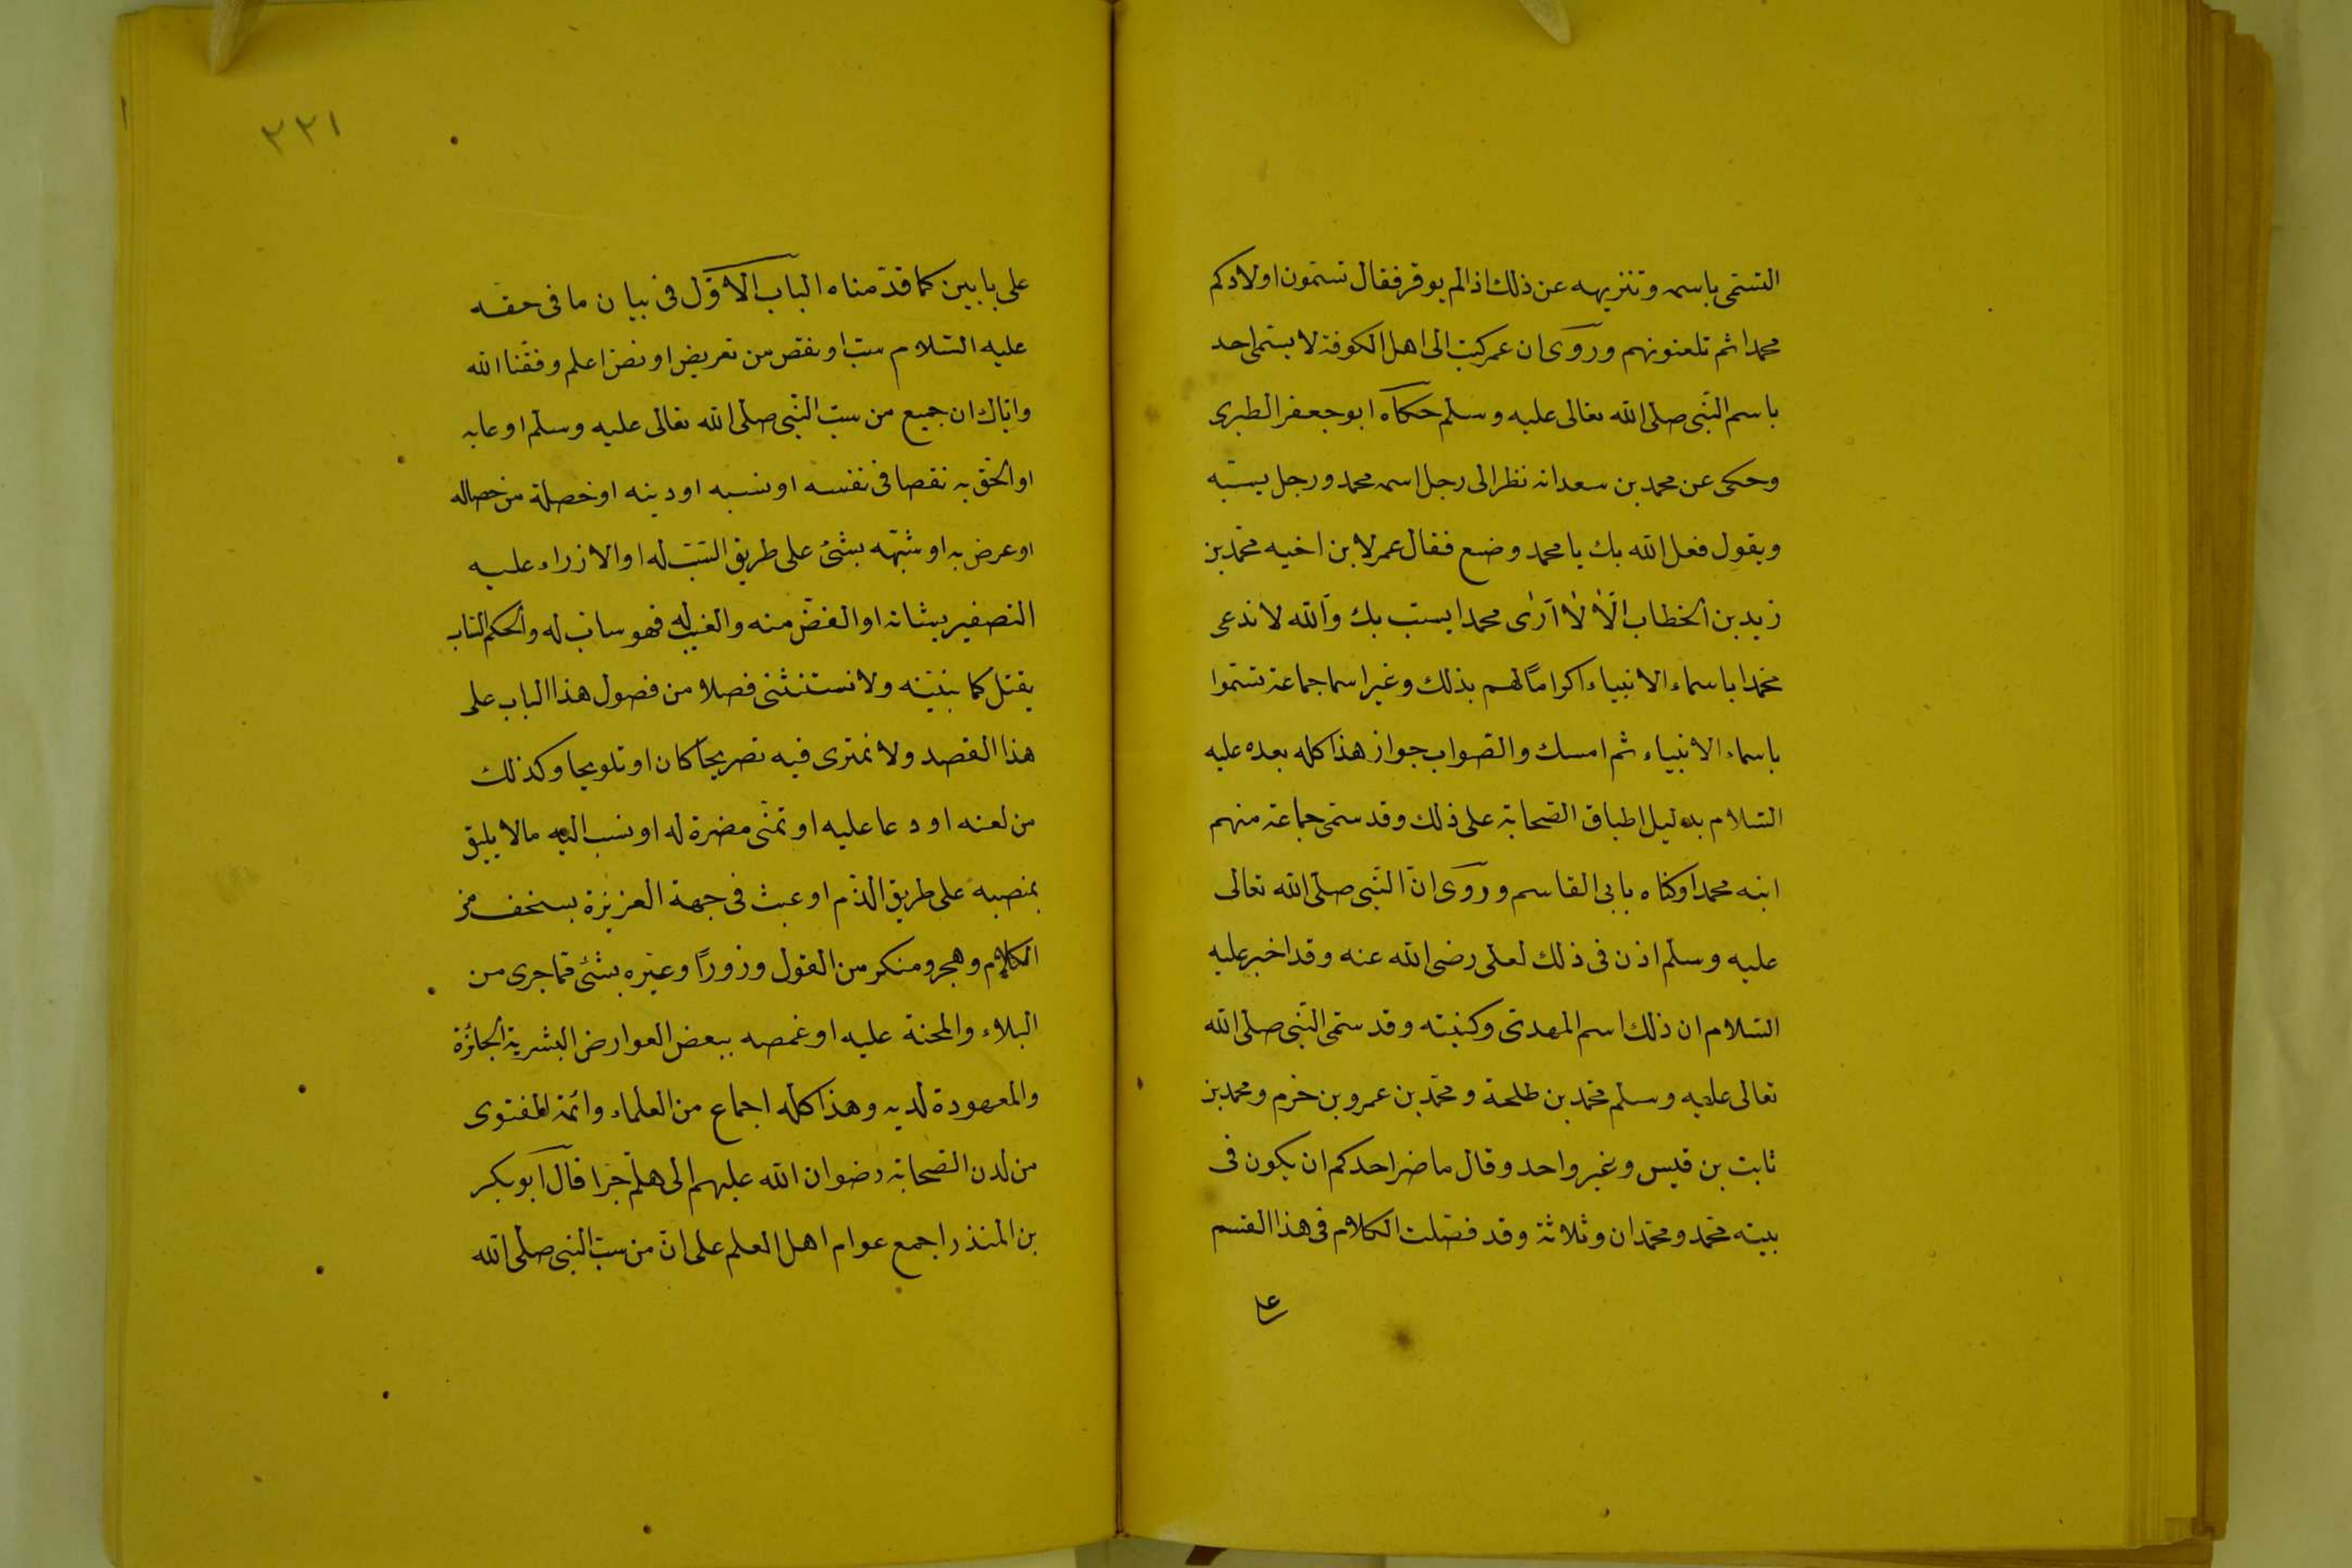 التسمّى باسمه وتنزيهه عن ذلك اذا لم يوقر فقال تسمّون اولادكم
محمدا ثم تلعنونهم وروى ان عمر كتب الى اهل الكوفة لا يسمّى احد
باسم النّبى صلى الله تعالى عليه وسلم حكاه ابو جعفر الطبرى
وحكى عن محمد بن سعد انه نظر الى رجل اسمه محمد ورجل يسبّه
ويقول فعل الله بك يا محمد وضع فقال عمر لابن اخيه محمّد بن
زيد بن الخطاب الّا لا ارى محمدا يسبّ بك والله لا ندعى
محمدا باسماء الانبياء اكرامًا لهم بذلك وغير اسما جماعة تسّموا
باسماء الانبياء ثم امسك والصّواب جواز هذا كله بعده عليه
السّلام بدليل اطباق الصّحابة على ذلك وقد سمّى جماعة منهم
ابنه محمدا وكنّاه بابى القاسم وروى انّ النّبى صلّى الله تعالى
عليه وسلّم اذن فى ذلك لعلى رضى الله عنه وقد اخبر عليه
السّلام ان ذلك اسم المهدى وكنيته وقد سمّى النّبى صلى الله
تعالى عليه وسلم محّمد بن طلحة ومحّمد بن عمرو بن حزم ومحمد بن
ثابت بن قيس وغير واحد وقال ما ضر احدكم ان يكون فى
بيته محّمد ومحّمدان وثلاثة وقد فصّلت الكلام فى هذا القسم
على
٢٢١
على بابين كما قدّمناه الباب الاوّل فى بيان ما فى حقّه
عليه السّلام سبّ او نقص من تعريض او نصّ اعلم وفقّنا الله
وايّاك ان جميع من سبّ النّبى صلى الله تعالى عليه وسلّم او عابه
او الحق به نقصا فى نفسه او نسبه او دينه او خصلة من خصاله
او عرض به او شبّهه بشئ على طريق السّبّ له او الازراء عليه
التصغير بشانه او الغضّ منه والعيب له فهو سابّ له والحكم السّابّ
يقتل كما بنيّنه ولا نستثنى فصلا من فصول هذا الباب على
هذا القصد ولا نمترى فيه تصريحًا كان او تلويحا وكذلك
من لعنه او دعا عليه او تمنّى مضرة له او نسب اليه ما لا يليق
بمنصبه على طريق الذّم او عبث فى جهة العزيزة بسخف من
الكلام وهجر ومنكر من القول وزورًا وعيّره بشئ مّما جرى من
البلاء والمحنة عليه او غمصه ببعض العوارض البشرية الجائزة
والمعهودة لديه وهذا كله اجماع من العلماء وائمة الفتوى
من لدن الصّحابة رضوان الله عليهم الى هلّم جرا قال ابو بكر
بن المنذر اجمع عوام اهل العلم على انّ من سبّ النبى صلى الله